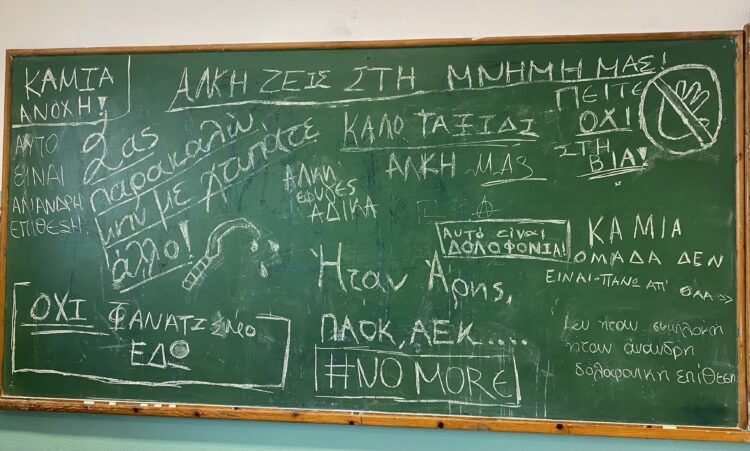 ΚΑΜΙΑ
ΑΝΟΧΗ!
ΑΛΚΗ ΖΕΙΣ ΣΤΗ ΜΝΗΜΗ ΜΑΣ!
ΑΥΤΟ
ΕΙΝΑΙ
ΑΛΙΑΝΔΡΗ
ΕΠΙΘΕΣΗ
Σας
παρακαλώ
μην με χτυπάτε
άλλο!
ΚΑΛΟ ΤΑΞΙΔΙ
ΑΛΚΗ ΜΑΣ
ΠΕΙΤΕ
ΟΧΙ
ΣΤΗ
ΒΙΑ!
Αλκη
έφυγες
ΑΔΙΚΑ
Αυτό είναι
ΔΟΛΟΦΟΝΙΑ!
ΚΑΜΙΑ
ΟΜΑΔΑ ΔΕΝ
ΕΙΝΑΙ ΠΑΝΩ ΑΠ'
Ήταν Άρης,
ΠΑΟΚ, ΑΕΚ.....
#NO MORE
ΟΧΙ ΦΑΝΑΤΙΣΜΟ
ΕΔΩ
Δεν ήταν συμπλοκή
ήταν άνανδρη
δολοφονική επίθεση